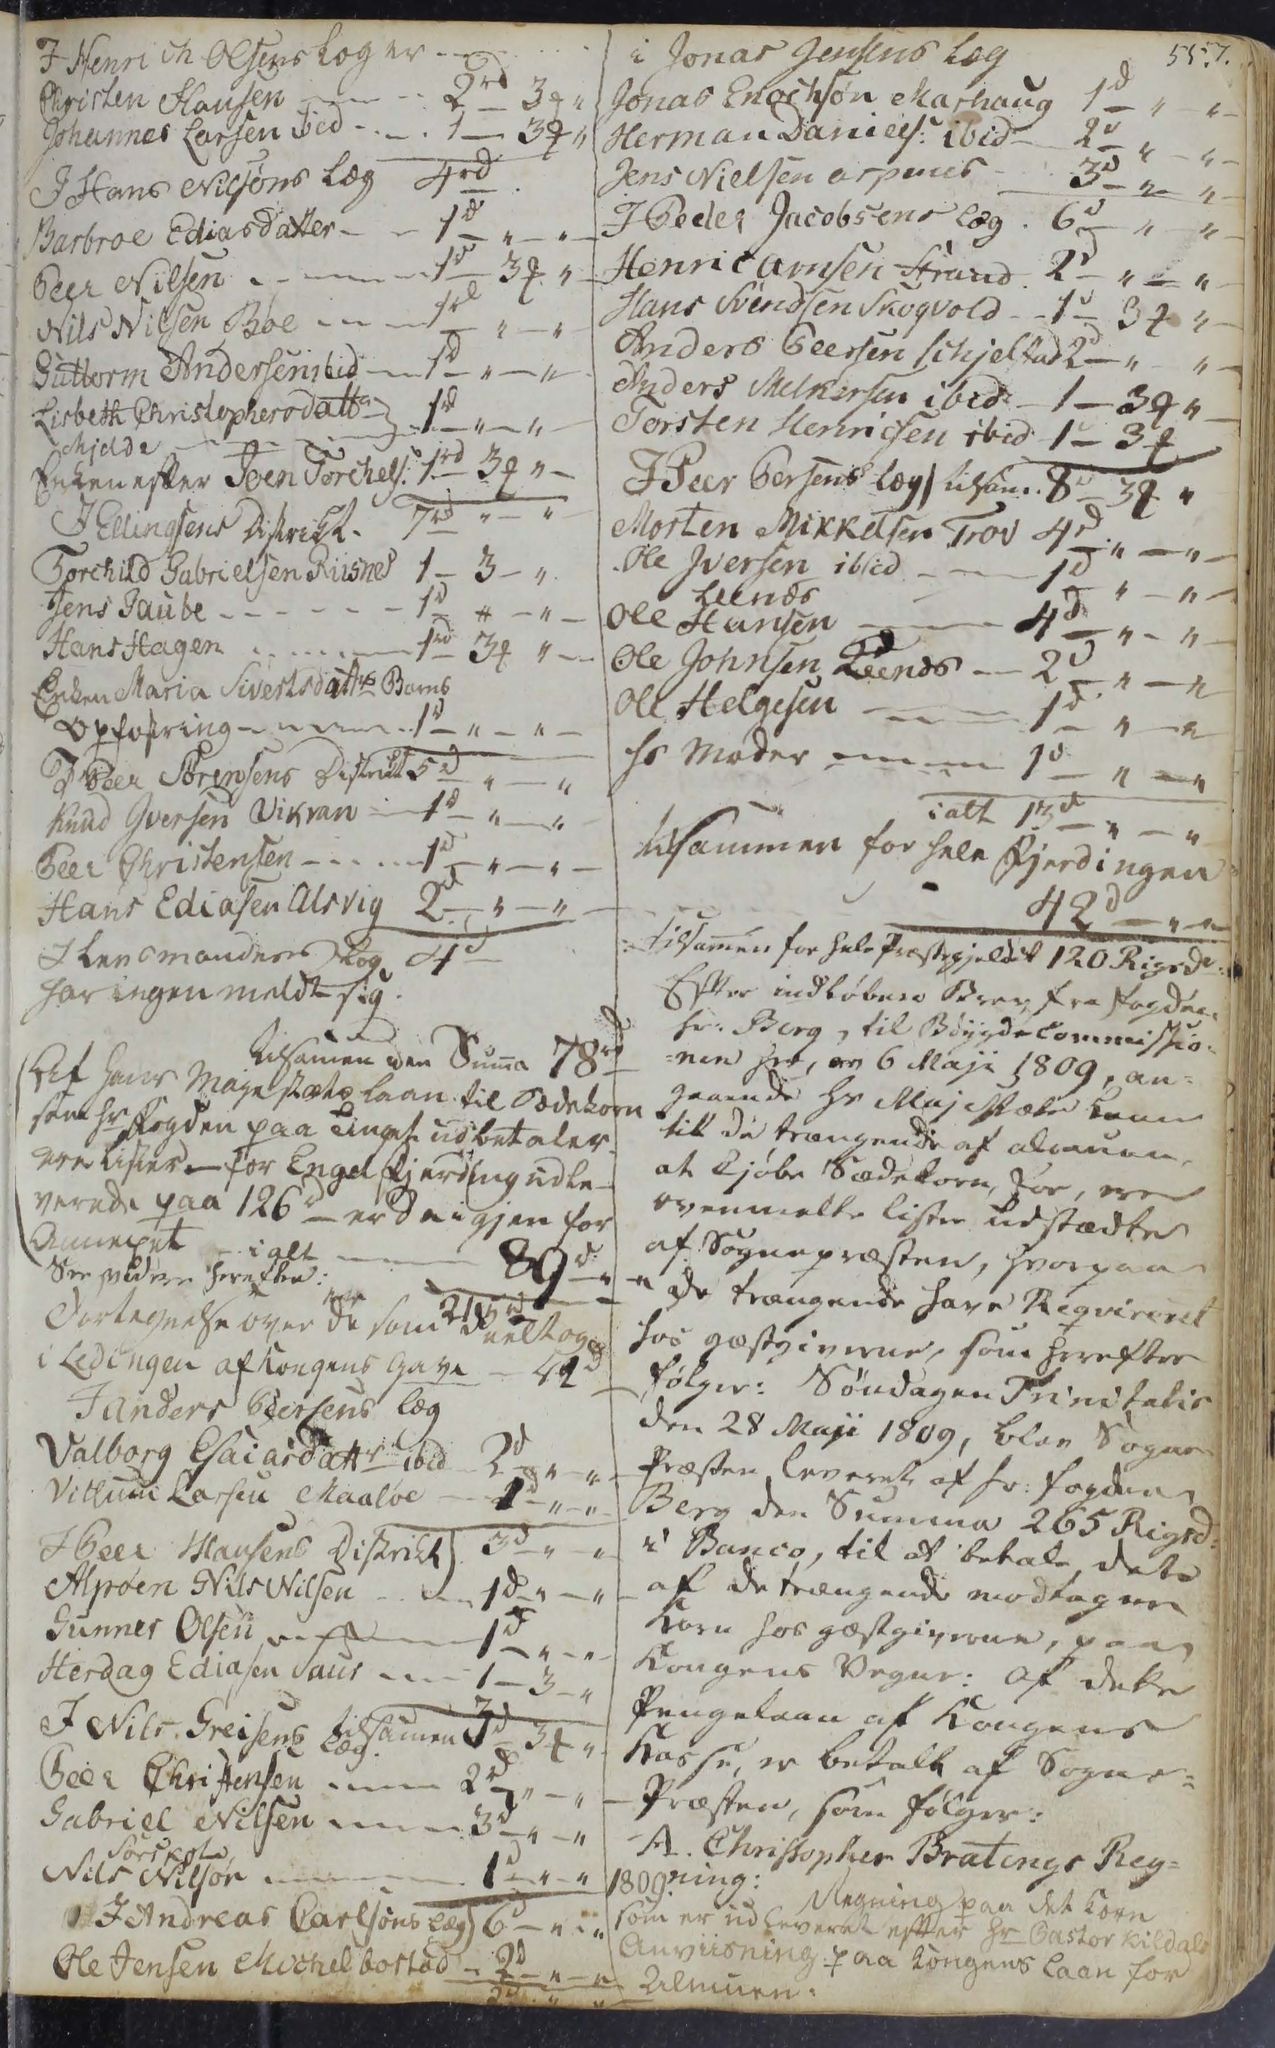 I Henrich Olsens Log er
Christen Hansen 2rd 3 "
Johannes Larsen ibid 1 — 3 "
I Hans Nilsöns Læg 4rd
Barbroe Ediasdatter 1d " — "
Peer Nilsen 1d 3 "
Nils Nilsen Böe 1rd " — "
Guttorm Andersen ibid 1d " — "
Lisbeth Christophersdatt 1rd " — "
Enken efter Joen Torchels: 1rd 3 "
I Ellingsens District 7rd " — "
Torchild Gabrielsen Riisnes 1 — 3 — "
Jens Taube 1d " — "
Hans Hagen 1rd 3 "
Enken Maria Sivertsdatters Barns
Opfostring 1d " — "
I Peer Sörensens District 5d " — "
Knud Iversen Vikran 1d " — "
Peer Christensen 1d " — "
Hans Ediasen Alsvig 2d " — "
I Lensmandens Log 4d
har ingen meldt sig.
tilsamen den Suma 78rd
Af hans Majestæts laan til Sædekorn
som hr Fogden paa Tinget udbetaler
ere Lister for Engel fjerding udle-
verede paa 126d er de igjen for
Annexet i alt 89d "
See videre herefter:
Fortegnelse over de som deeltog
i Ledingen af Kongens Gave 42d
I Anders Peersens læg
Valborg Esaiasdattr ibid 2d " "
Villum Larsen Maaløe 1d " "
I Peer Hansens District 3d " "
Alpöen Nils Nilsen 1d " — "
Gunner Olsen 1d " "
Herdag Ediasen Saus 1 — 3 — "
tilsamen 3d 3 "
I Nils Greisens Læg
Peer Christensen 2d " — "
Gabriel Nilsen 3d " — "
Nils Nilsön 1d " "
I Andreas Carlsöns læg 6d " "
Ole Jensen Michelbostad 2d " "
557.
i Jonas Jensens Læg
Jonas Enochsön Marhaug 1d " "
Herman Daniels: ibid 2d " "
Jens Nielsen 3d " "
I Peder Jacobsens læg 6d " "
Henric Arnsen Strand 2d " "
Hans Svendsen Skogvold 1d 3 "
Anders Peersen schjelstad 2d " "
Anders Melkersen ibid 1 — 3 "
Torsten Henricsen ibid 1 — 3
I Peer Persens læg tilsam. 8d 3 "
Morten Mikkelsen Trov 4d " — "
Ole Iversen ibid 1d " — "
Leends
Ole Hansen 4d " — "
Ole Johnsen Leends 2d " — "
Ole Helgesen 1d " — "
hs Moder 1d " — "
i alt 13d " — "
tilsammen for hele Fjerdingen
42d " "
tilsamen for hele Præstegjeldet 120 Rigsdr.
Efter indløben Brev fra Fogden
hr. Berg, til Böygdecommissio-
nen her, an-
gaaende hs Majestæts Laan
til de trængende af almuen,
at kjøbe Sædekorn for, ere
ovenmelte lister udstædte
af Sognepræsten, hvorpaa
de trængende have Reqvireret
hos gæstgiverne, som herefter
følger: Søndagen Trinitatis
den 28 Maji 1809, blev Sogne
Præsten leveret af hr. Fogden
Berg den Summa 265 Rigsd.
i Banco, til at betale dets
af de trængende modtagne
Korn hos gæstgiverne, paa
Kongens Vegne: Af dette
Pengelaan af Kongens
Kasse, er betalt af Sogne-
Præsten, som følger:
A. Christopher Bratings Reg-
1809. ning:
Regning paa det Korn
som er udleveret efter hr Pastor Kildals
Anviisning paa Kongens Laan for
Almuen.